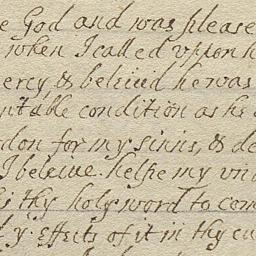 e God and was please
when I called vppon h
ercy & beleiud he was
ntable condition as he
don for my sinns, & de
I beleiue. helpe my vn
s thy holy word to com
y effects of it in thy